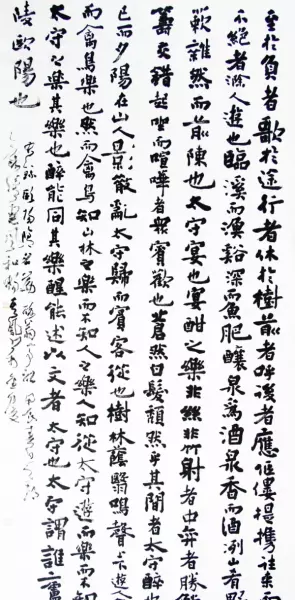 至於負者歌於途行者休於樹前者呼後者應傴僂提攜往來而
不絕者滁人遊也臨溪而漁谿深而魚肥釀泉為酒泉香而酒洌山肴野
蔌雜然而前陳也太守宴也宴酣之樂非絲非竹射者中弈者勝
籌交錯起坐而喧嘩者眾賓歡也蒼然白髮頹然乎其間者太守醉也
已而夕陽在山人景散亂太守歸而賓客從也樹林蔭翳鳴聲上下遊人
而禽鳥樂也然而禽鳥知山林之樂而不知人之樂人知從太守遊而樂而不知
太守之樂其樂也醉能同其樂醒能述以文者太守也太守謂誰廬
陵歐陽也